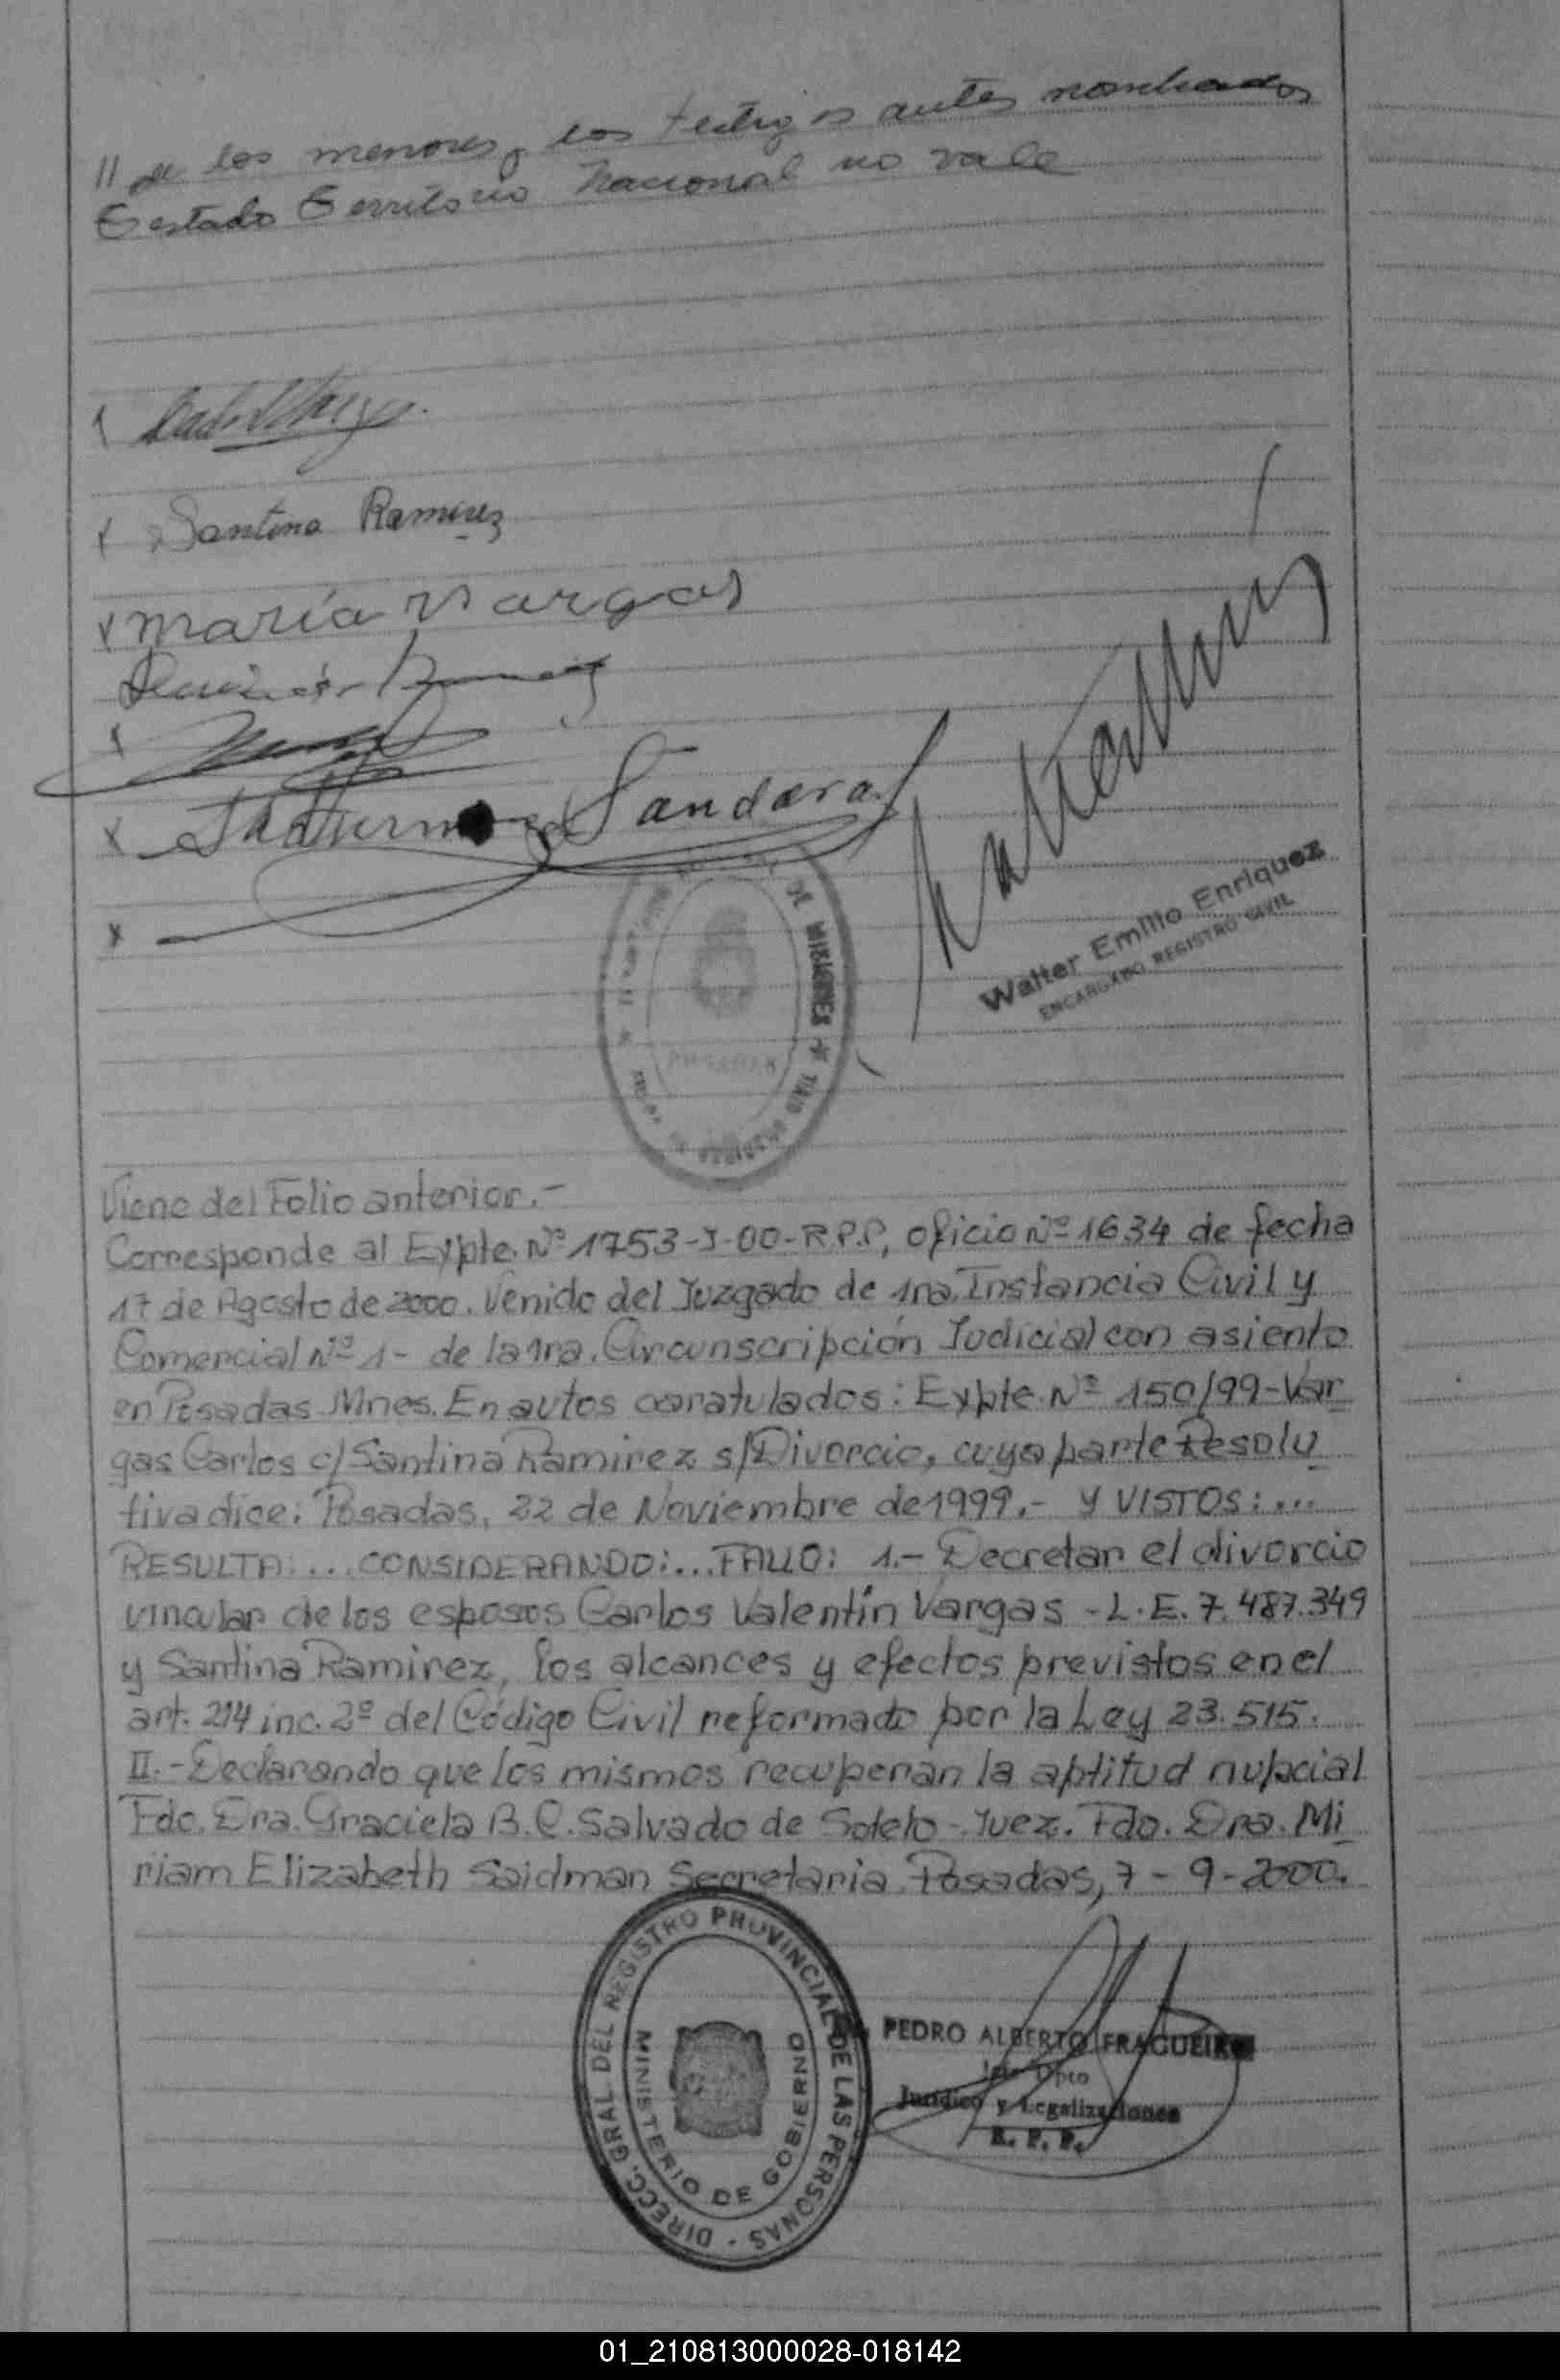 // de los menores y los testigos antes nombrados
Testado Territorio Nacional no vale
Santina Ramirez
María Vargas
Sandoval
Walter Emilio Enriquez
ENCARGADO REGISTRO CIVIL
DE MISIONES
POSADAS
Viene del Folio anterior.-
Corresponde al Expte. Nº 1753-J-00-R.P.P, oficio Nº 1634 de fecha
17 de Agosto de 2000. Venido del Juzgado de 1ra. Instancia Civil y
Comercial Nº 1- de la 1ra. Circunscripción Judicial con asiento
en Posadas Mnes. En autos caratulados: Expte. Nº 150/99-Var
gas Carlos c/Santina Ramirez s/Divorcio, cuya parte Resolu
tiva dice: Posadas, 22 de Noviembre de 1999.- Y VISTOS:...
RESULTA:... CONSIDERANDO:... FALLO: 1.- Decretar el divorcio
vincular de los esposos Carlos Valentín Vargas - L.E. 7.487.349
y Santina Ramirez, los alcances y efectos previstos en el
art. 214 inc. 2º del Código Civil reformado por la Ley 23.515.
II.- Declarando que los mismos recuperan la aptitud nupcial
Fdo. Dra. Graciela B.C. Salvado de Sotelo - Juez. Fdo. Dra. Mi
riam Elizabeth Saidman Secretaria. Posadas, 7-9-2000.
DIRECC. GRAL DEL REGISTRO PROVINCIAL DE LAS PERSONAS -
MINISTERIO DE GOBIERNO
PEDRO ALBERTO FRAGUEIRO
Jefe Dpto
Jurídico y Legalizaciones
R. P. P.
01_210813000028-018142